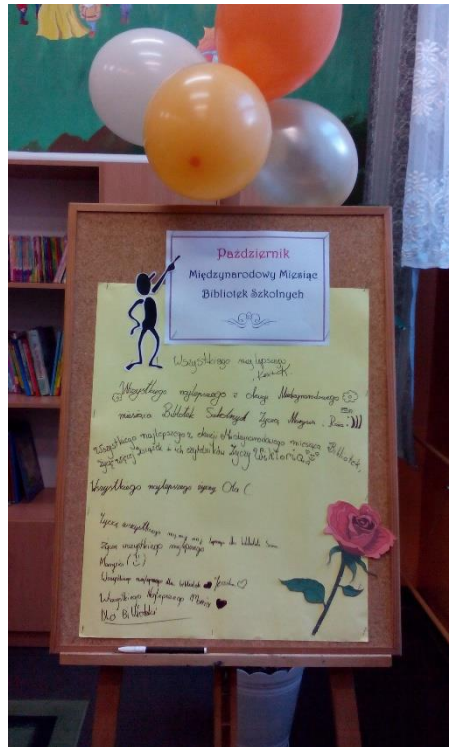 Październik
Międzynarodowy Miesiąc
Bibliotek Szkolnych
Wszystkiego najlepszego
Wszystkiego najlepszego z okazji Międzynarodowego
miesiąca Bibliotek Szkolnych Życzą
Wszystkiego najlepszego z okazji Międzynarodowego miesiąca Bibliotek,
i ich czytelników Życzy Wiktoria
Wszystkiego najlepszego życzy Ola (
Życzę wszystkiego naj naj naj dla biblioteki
Życzę wszystkiego najlepszego
(☺)
Wszystkiego najlepszego dla biblioteki
Wszystkiego Najlepszego
Dla Biblioteki